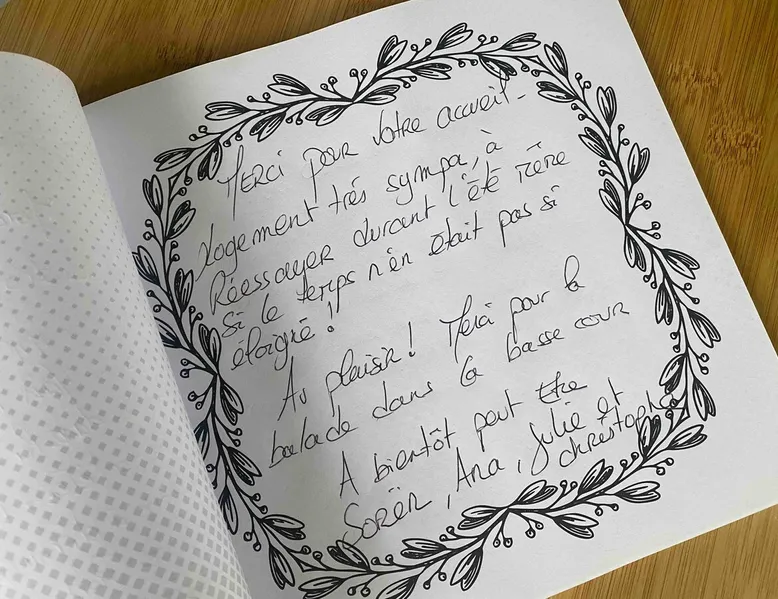 Merci pour votre accueil.
Logement très sympa, à
Réessayer durant l'été même
si le temps n'en était pas si
éloigné !
Au plaisir ! Merci pour la
balade dans la basse cour
A bientôt peut être
Sorën, Ana, Julie et
christophe